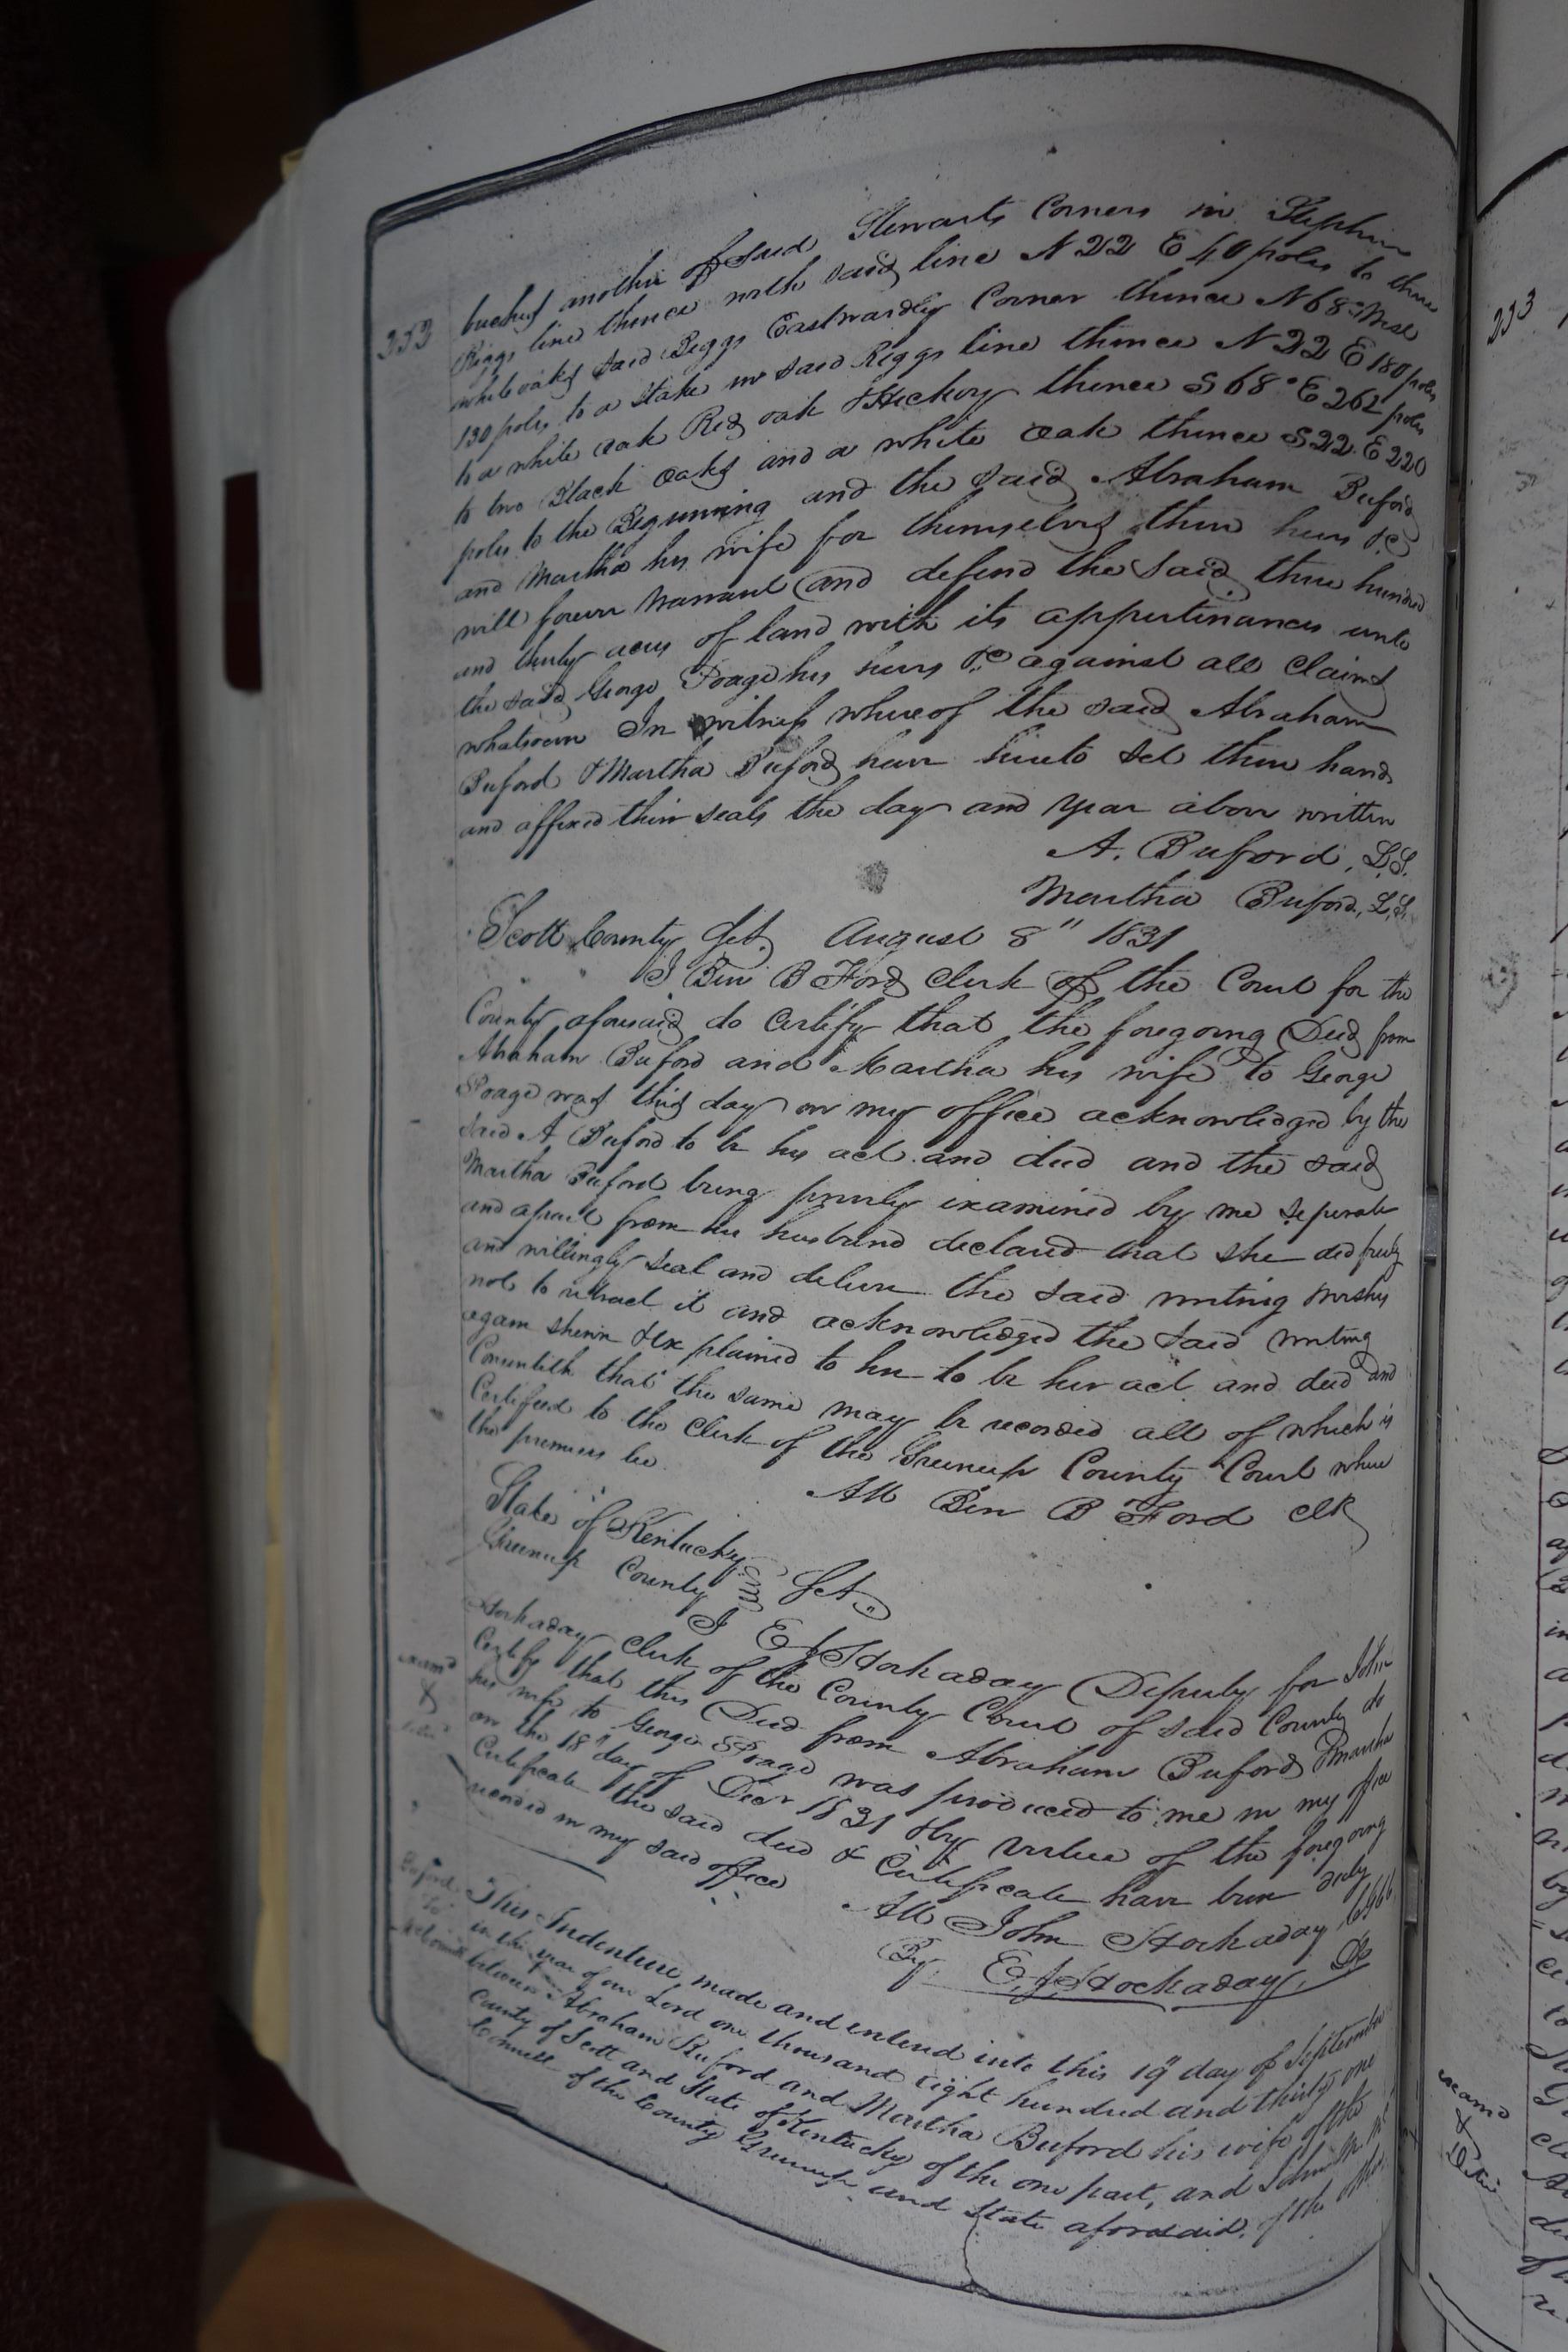 232
buchus another of said Stewarts Corners in Stephen
Riggs line thence with said line N 22 E 40 poles to three
white oaks said Riggs Eastwardly Corner thence N 68° West
130 poles to a Stake in said Riggs line thence N 22 E 180 poles
to a white oak Red oak & Hickory thence S 68° E 262 poles
to two Black oaks and a white oak thence S 22 E 220
poles to the Beginning and the said Abraham Buford
and Martha his wife for themselves their heirs &c
will forever Warrant and defend the said three hundred
and thirty acres of land with its appurtinances unto
the said George Poage his heirs &c against all Claims
whatsoever In witness whereof the said Abraham
Buford & Martha Buford have hereto set their hands
and affixed their seals the day and year above written
A. Buford, L.S.
Martha Buford, L.S.
Scott County Sct. August 8" 1831
I Ben B Ford Clerk of the Court for the
County aforesaid do Certify that the foregoing Deed from
Abraham Buford and Martha his wife to George
Poage was this day in my office acknowledged by the
said A Buford to be his act and deed and the said
Martha Buford being privily examined by me seperate
and apart from her husband declared that she did freely
and willingly seal and deliver the said writing & wishes
not to retract it and acknowledged the said writing
again shewn & explained to her to be her act and deed and
Consenteth that the same may be recorded all of which is
Certified to the Clerk of the Greenup County Court where
the premises lie.
Att Ben B Ford Clk
State of Kentucky
Greenup County Sct.
I E J Hockaday Deputy for John
Hockaday Clerk of the County Court of said County do
Certify that this Deed from Abraham Buford & Martha
his wife to George Poage was produced to me in my office
on the 18" day of Decr 1831 & by virtue of the foregoing
Certificate the said deed & Certificate have been duly
recorded in my said office
Att John Hockaday
By E. J. Hockaday, DC
Examd
&
Buford
To
This Indenture made and entered into this 19" day of September
in the year of our Lord one thousand eight hundred and thirty one
between Abraham Buford and Martha Buford his wife of the
County of Scott and State of Kentucky of the one part, and John
Connell of the County Greenup and State aforesaid, of the other
233
Examd
&